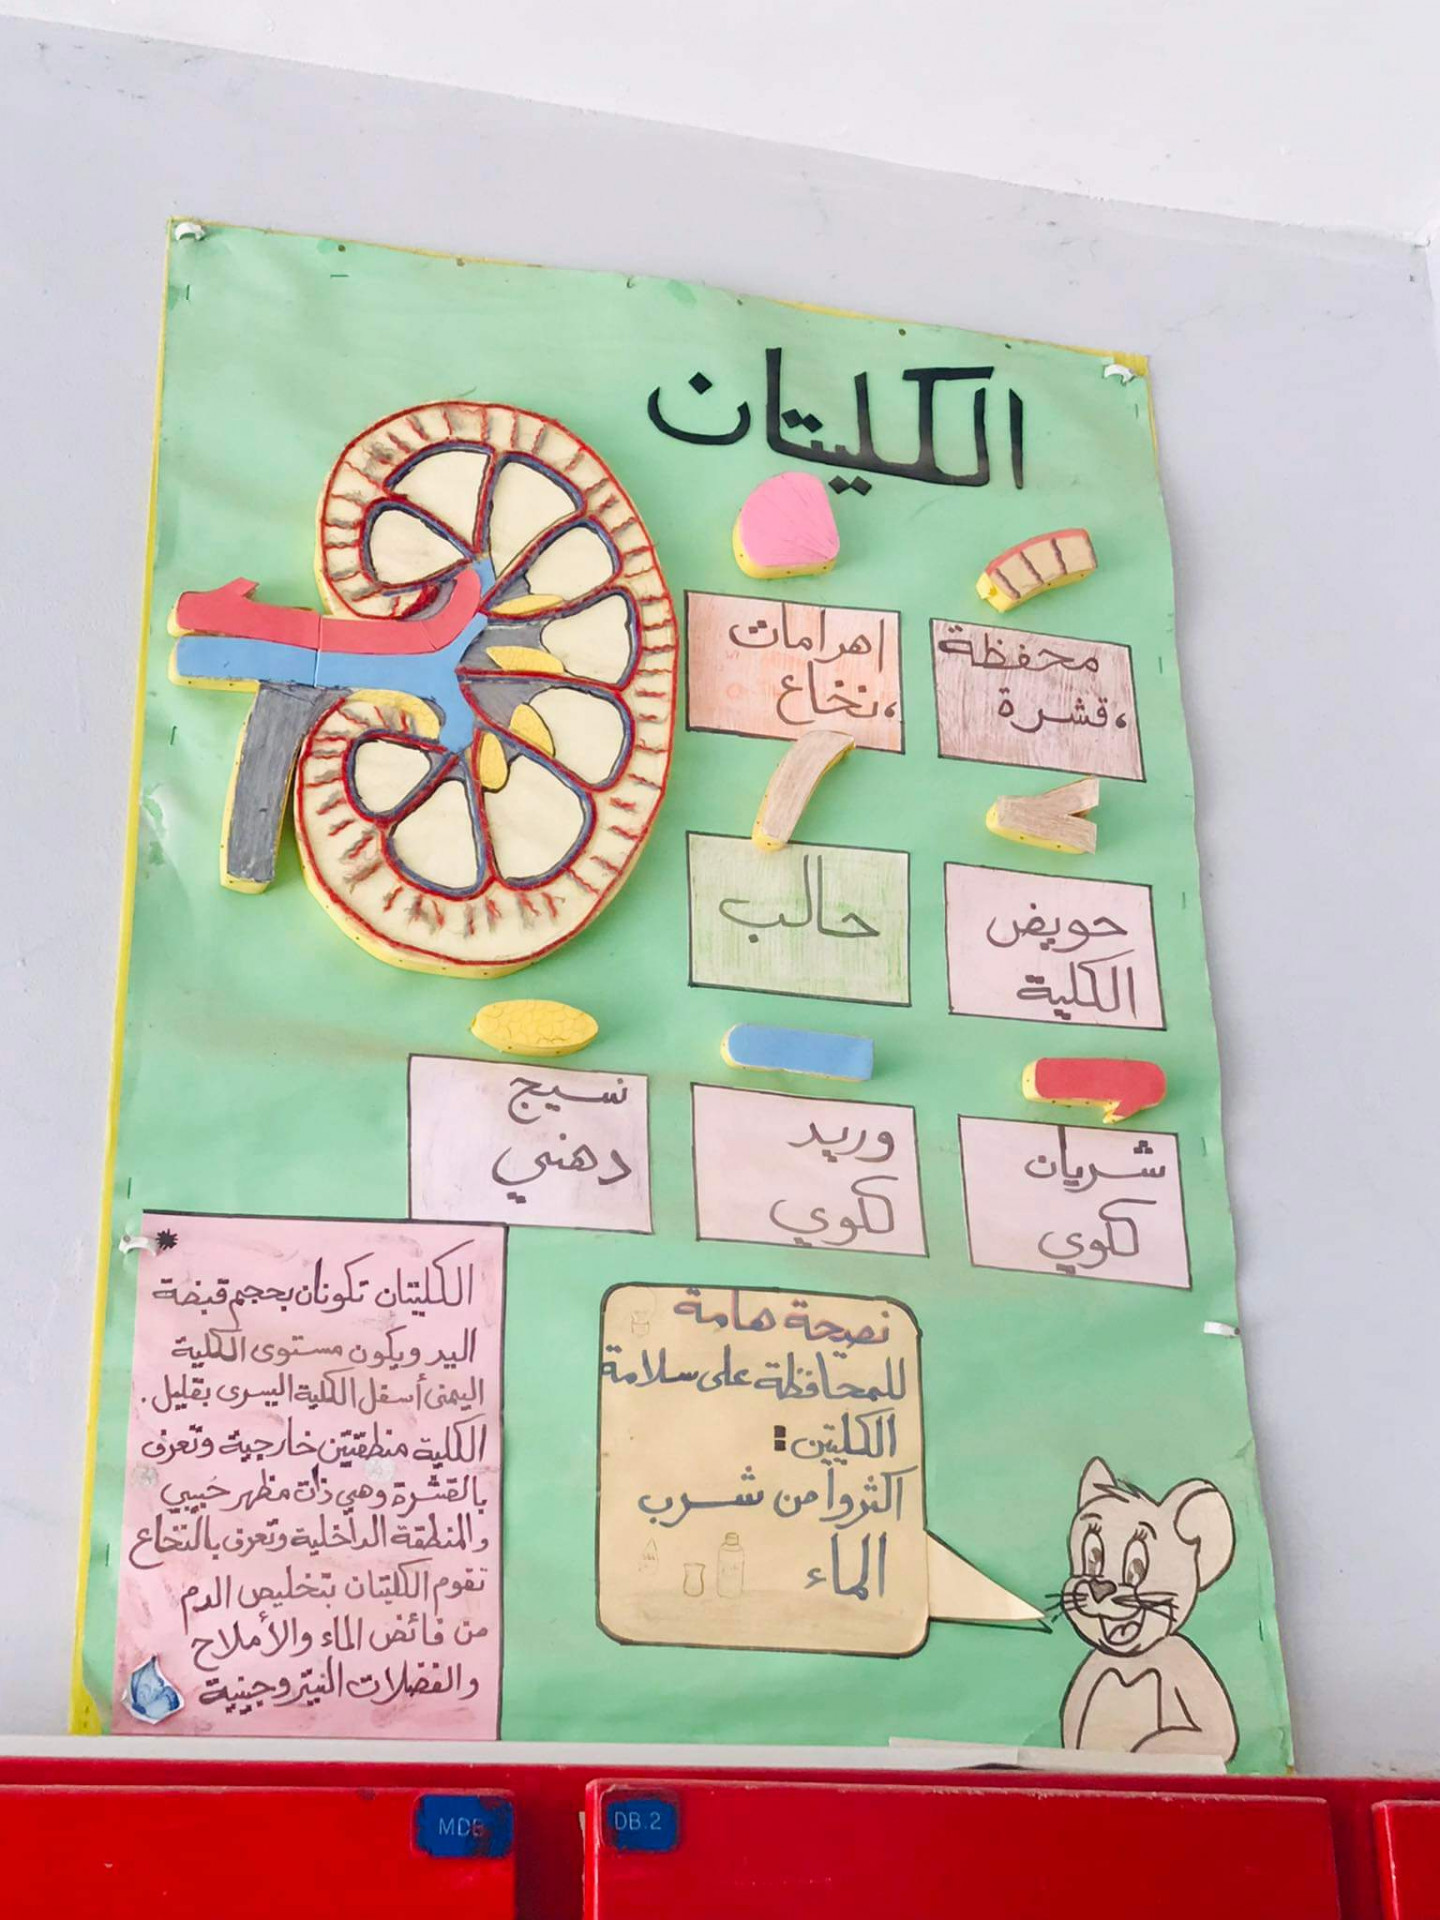 الكليتان
محفظة
،قشرة
اهرامات
،نخاع
حويض
الكلية
حالب
شريان
كلوي
وريد
كلوي
نسيج
دهني
الكليتان تكونان بحجم قبضة
اليد ويكون مستوى الكلية
اليمنى أسفل الكلية اليسرى بقليل.
الكلية منطقتين خارجية وتعرف
بالقشرة وهي ذات مظهر حبيبي
والمنطقة الداخلية وتعرف بالنخاع
تقوم الكليتان بتخليص الدم
من فائض الماء والأملاح
والفضلات النيتروجينية
نصيحة هامة
للمحافظة على سلامة
الكليتين:
اكثروا من شرب
الماء
MDB
DB.2